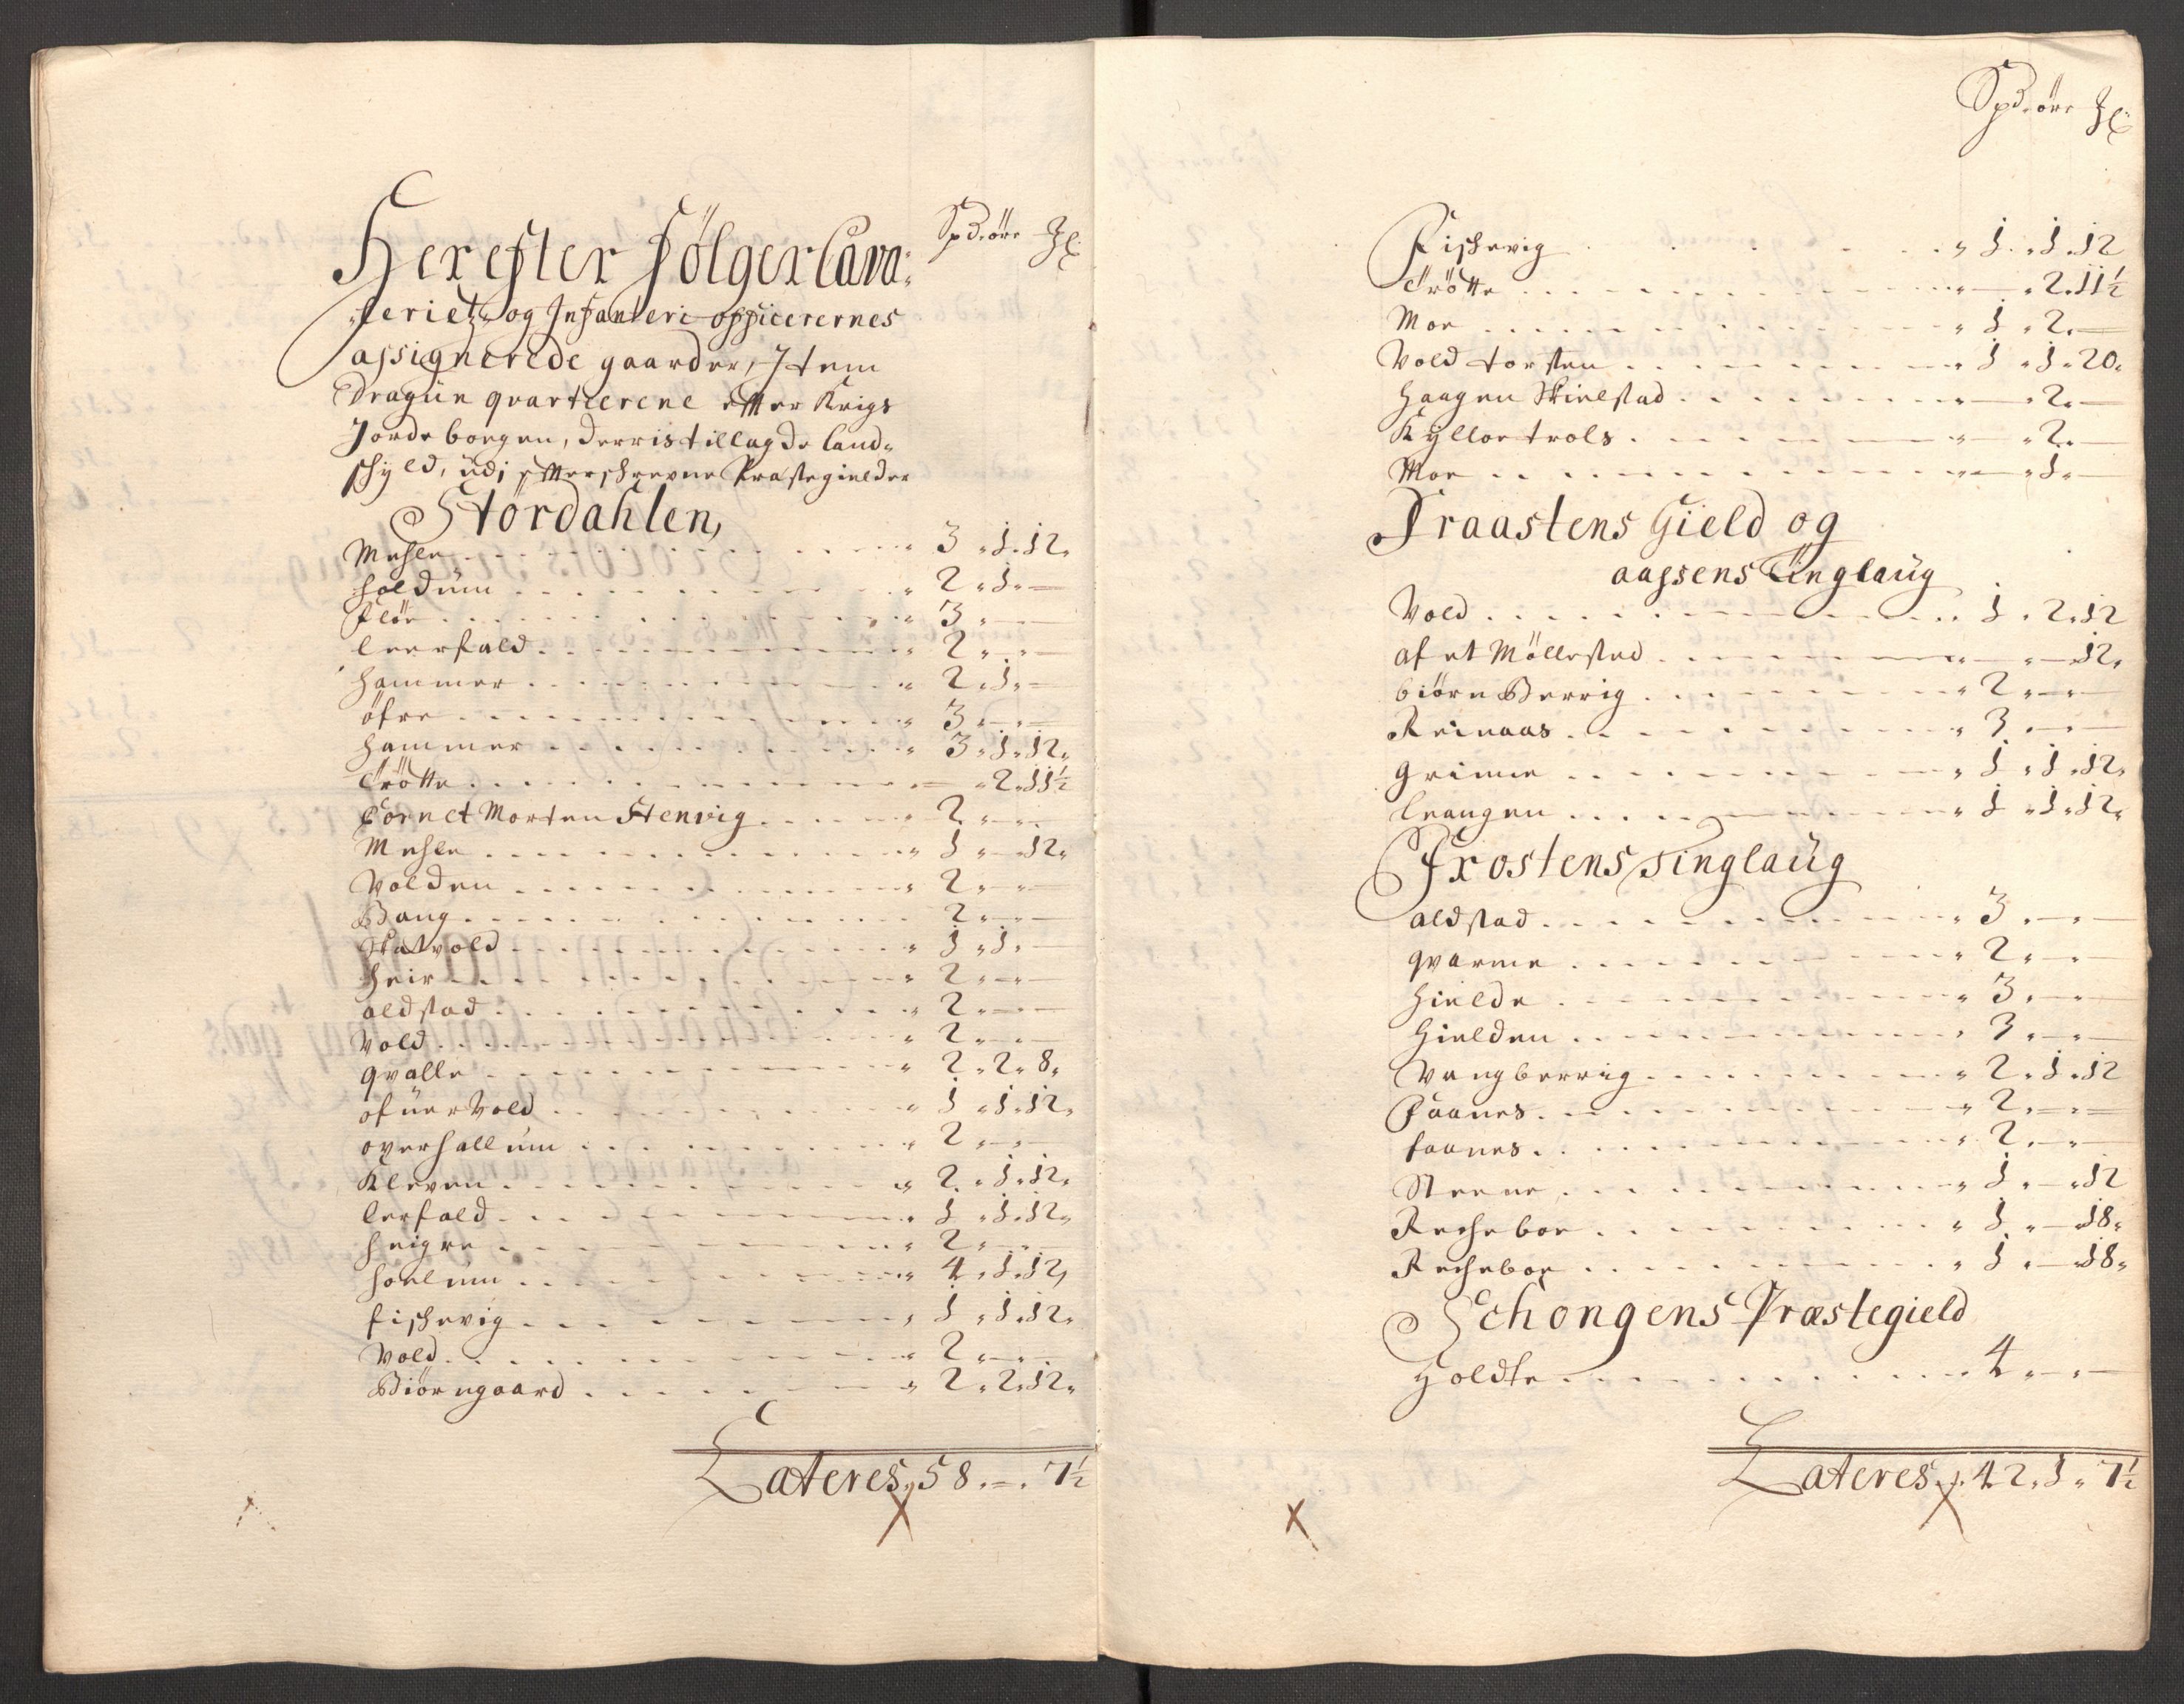 Spd. öre
Herefter Fölger Cava-
leriets og Infanteri officerernes
assignerede gaarder, Item
Dragun qvartierene efter Krigs
Jordebogen, derris tillagde Land-
schyld, udj efterschrevne Præstegielder
Stördahlen,
Mehle 3 „ 1 „ 12 „
holdum 2 „ 1 „ —
Flör 3 „ —
leerfald 2 „ — „ —
hammer 2 „ 1 „ —
öfre 3 „ — „ —
hammer 3 „ 1 „ 12 „
Trötte — „ 2 „ 11½
Cornet Morten Stenvig 2 „ — „ —
Mehle 1 „ — „ 12 „
Volden 2 „ — „ —
Bang 2 „ — „ —
Skatvold 1 „ 1 „ —
heir 2 „ — „ —
aldstad 2 „ — „ —
Vold 2 „ — „ —
qvalle 2 „ 2 „ 8 „
ofuer Vold 1 „ 1 „ 12 „
overhallum 2 „ — „ —
Kleven 2 „ 1 „ 12 „
lerfald 1 „ 1 „ 12 „
heigre 2 „ — „ —
hoelum 4 „ 1 „ 12 „
fischevig 1 „ 1 „ 12 „
Vold 2 „ — „ —
Biörngaard 2 „ 2 „ 12 „
Lateres „ 58 „ — „ 7½
Spd. öre
Fischevig 1 „ 1 „ 12
Trötte — „ 2 „ 11½
Moe 1 „ 2 „ —
Vold torsten 1 „ 1 „ 20 „
haagen Skielstad — „ 2 „ —
Kylloe trols — „ 2 „ —
Moe — „ 1 „ —
Praastens Gield og
aassens Tinglaug
Vold 1 „ 2 „ 12
af et Möllested — „ — „ 12 „
biörn Berrig 2 „ — „ —
Reinaas 3 „ — „ —
Grinne 1 „ 1 „ 12 „
leangen 1 „ 1 „ 12 „
Frostens Tinglaug
aldstad 3 „ — „ —
qvarme 2 „ — „ —
hielde 3 „ — „ —
Hielden 3 „ — „ —
Vangberrig 2 „ 1 „ 12
Faanes 2 „ — „ —
faanes 2 „ — „ —
Steene 1 „ — „ 12
Recheboe 1 „ — „ 18 „
Recheboe 1 „ — „ 18 „
Schongens Præstegield
Holdte 4 „ — „ —
Lateres „ 42 „ 1 „ 7½